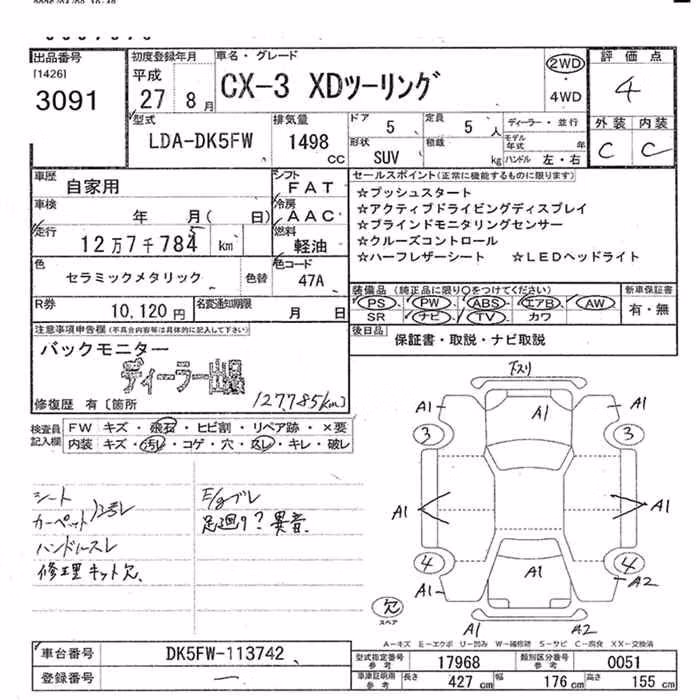 出品番号
[1426]
3091
初度登録年月
平成
27 8 月
車名・グレード
CX-3 XDツーリング
2WD
・
4WD
評価点
4
外装 内装
C C
型式
LDA-DK5FW
排気量
1498
CC
ドア
5
定員
5 人
ディーラー・並行
モデル年式 年
形状
SUV
積載
kg
ハンドル 左・右
車歴
自家用
シフト
FAT
車検
年 月( 日)
冷房
AAC
走行
12万7千784 5 km
燃料
軽油
色
セラミックメタリック
色替
色コード
47A
R券
10,120 円
名変通知期限
月 日
セールスポイント(正常に機能するものに限ります)
☆プッシュスタート
☆アクティブドライビングディスプレイ
☆ブラインドモニタリングセンサー
☆クルーズコントロール
☆ハーフレザーシート ☆LEDヘッドライト
装備品(純正品に限り○をつけてください)
PS PW ABS エアB AW
SR ナビ TV カワ
新車保証書
有・無
後日品
保証書・取説・ナビ取説
注意事項申告欄(不具合内容等は具体的に記入して下さい)
バックモニター
ディーラー出品
127,785km
修復歴 有〔箇所
検査員記入欄
FW キズ・飛石・ヒビ割・リペア跡・×要
内装 キズ・汚レ・コゲ・穴・スレ・キレ・破レ
シート
カーペット
汚レ
ハンドルスレ
修理キット欠
E/gブレ
足廻り?異音
下スリ
A1 A1 A1
3 3
A1 A1
4 4
A1 A1 A2
A1 A2
欠
スペア
A-キズ E-エクボ U-凹み W-補修跡 S-サビ C-腐食 XX-交換済
車台番号
DK5FW-113742
登録番号
—
型式指定番号
参考
17968
類別区分番号
参考
0051
車庫証明用
参考
長さ
427 cm
幅
176 cm
高さ
155 cm